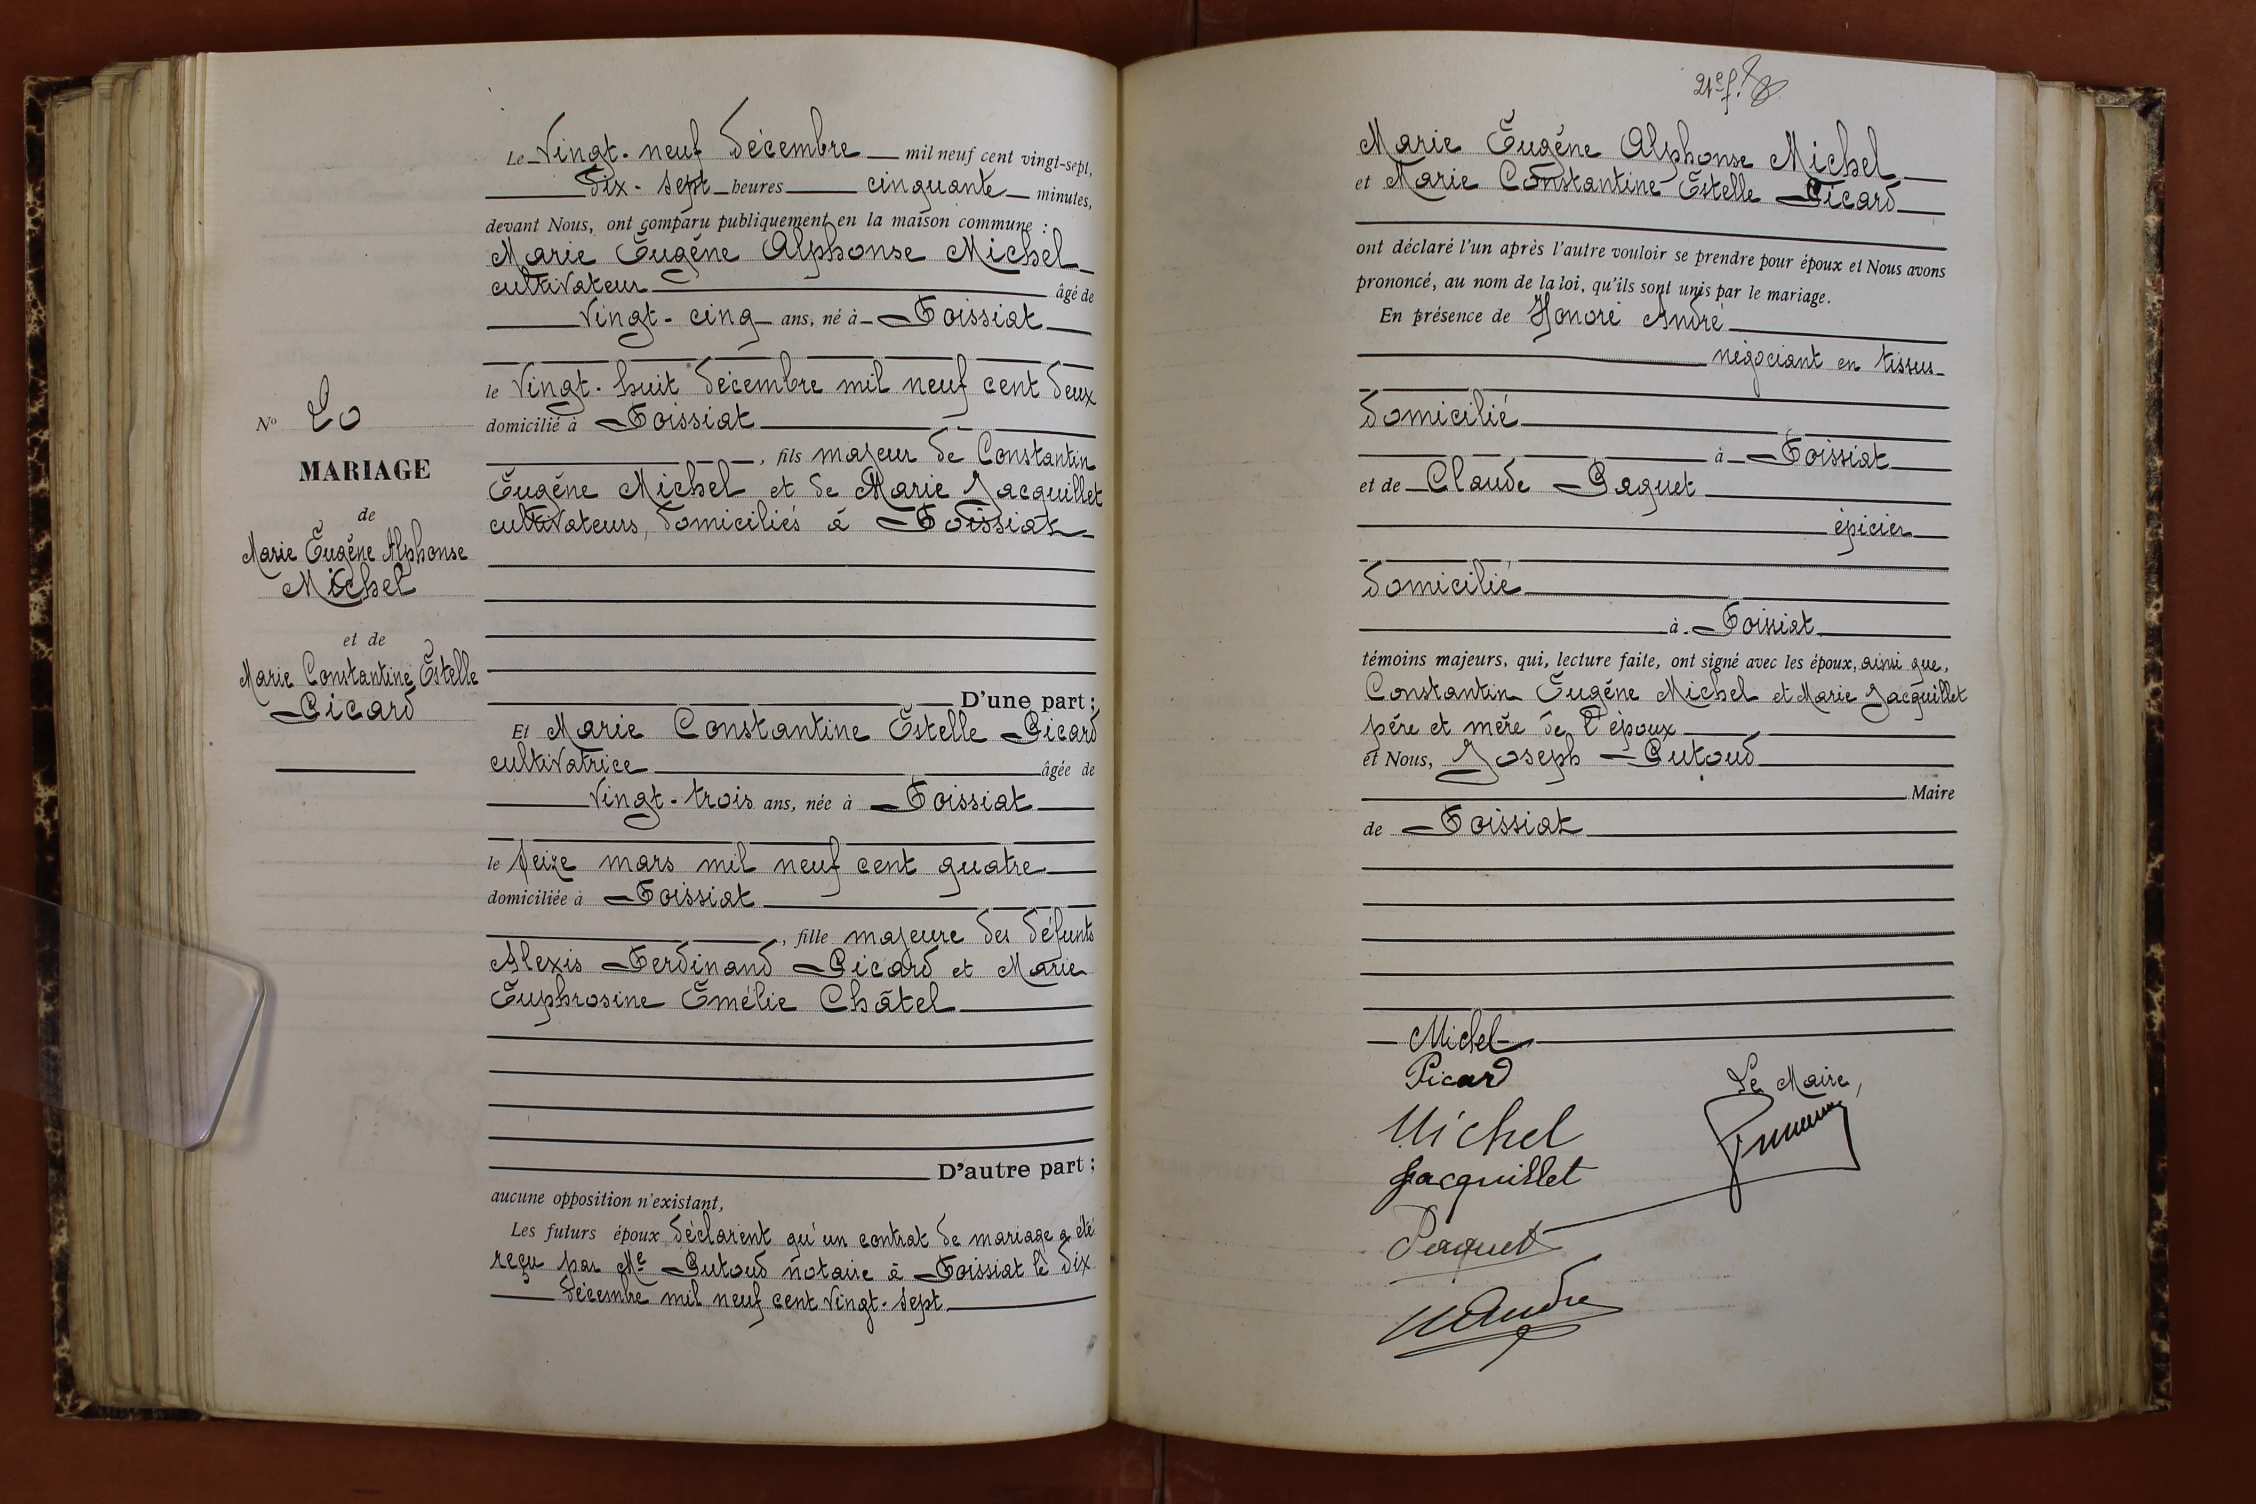 Le Vingt-neuf décembre mil neuf cent vingt-sept,
dix-sept heures cinquante minutes,
devant Nous, ont comparu publiquement en la maison commune :
Marie Eugène Alphonse Michel
cultivateur âgé de
vingt-cinq ans, né à Foissiat
le vingt-huit décembre mil neuf cent deux
domicilié à Foissiat
, fils majeur de Constantin
Eugène Michel et de Marie Jacquillet
cultivateurs, domiciliés à Foissiat
D'une part ;
Et Marie Constantine Estelle Picard
cultivatrice âgée de
vingt-trois ans, née à Foissiat
le seize mars mil neuf cent quatre
domiciliée à Foissiat
, fille majeure des défunts
Alexis Ferdinand Picard et Marie
Euphrosine Emélie Châtel
D'autre part ;
aucune opposition n'existant,
Les futurs époux déclarent qu'un contrat de mariage a été
reçu par Me Putoud notaire à Foissiat le dix
décembre mil neuf cent vingt-sept
No 20
MARIAGE
de
Marie Eugène Alphonse
Michel
et de
Marie Constantine Estelle
Picard
21e f.
Marie Eugène Alphonse Michel
et Marie Constantine Estelle Picard
ont déclaré l'un après l'autre vouloir se prendre pour époux et Nous avons
prononcé, au nom de la loi, qu'ils sont unis par le mariage.
En présence de Honoré André
négociant en tissus
domicilié
à Foissiat
et de Claude Paquet
épicier
domicilié
à Foissiat
témoins majeurs, qui, lecture faite, ont signé avec les époux, ainsi que,
Constantin Eugène Michel et Marie Jacquillet
père et mère de l'époux
et Nous, Joseph Putoud
Maire
de Foissiat
Michel
Picard
Le Maire,
Michel
Jacquillet
Paquet
André